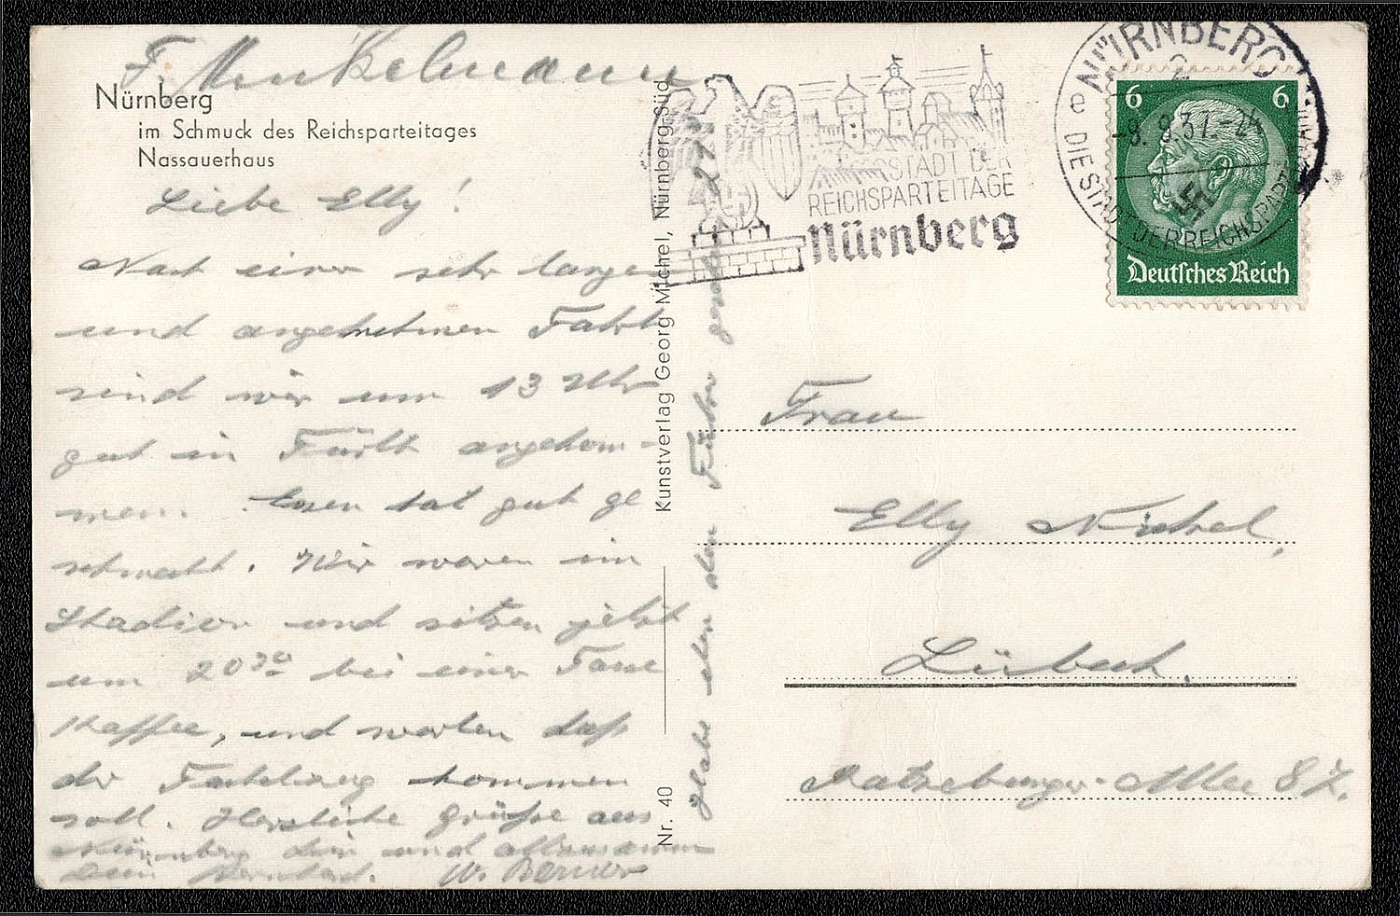 F. Menkelmann
Nürnberg
im Schmuck des Reichsparteitages
Nassauerhaus
Liebe Elly!
Nach einer sehr langen
und angenehmen Fahrt
sind wir um 13 Uhr
gut in Fürth angekom-
men. Essen hat gut ge
schmeckt. Wir waren im
Stadion und sitzen jetzt
um 20³⁰ bei einer Tasse
Kaffee, und warten daß
der Fackelzug kommen
soll. Herzliche Grüße aus
Nürnberg Dein und
Dein Bernhard. W.
Habe eben den Führer gesehen
Kunstverlag Georg Michel, Nürnberg-Süd
Nr. 40
STADT DER
REICHSPARTEITAGE
Nürnberg
NÜRNBERG
2
e
-9.9.37.-24
DIE STADT DER REICHSPARTEITAGE
6 6
Deutsches Reich
Frau
Elly Nickel,
Lübeck.
Ratzeburger-Allee 87.